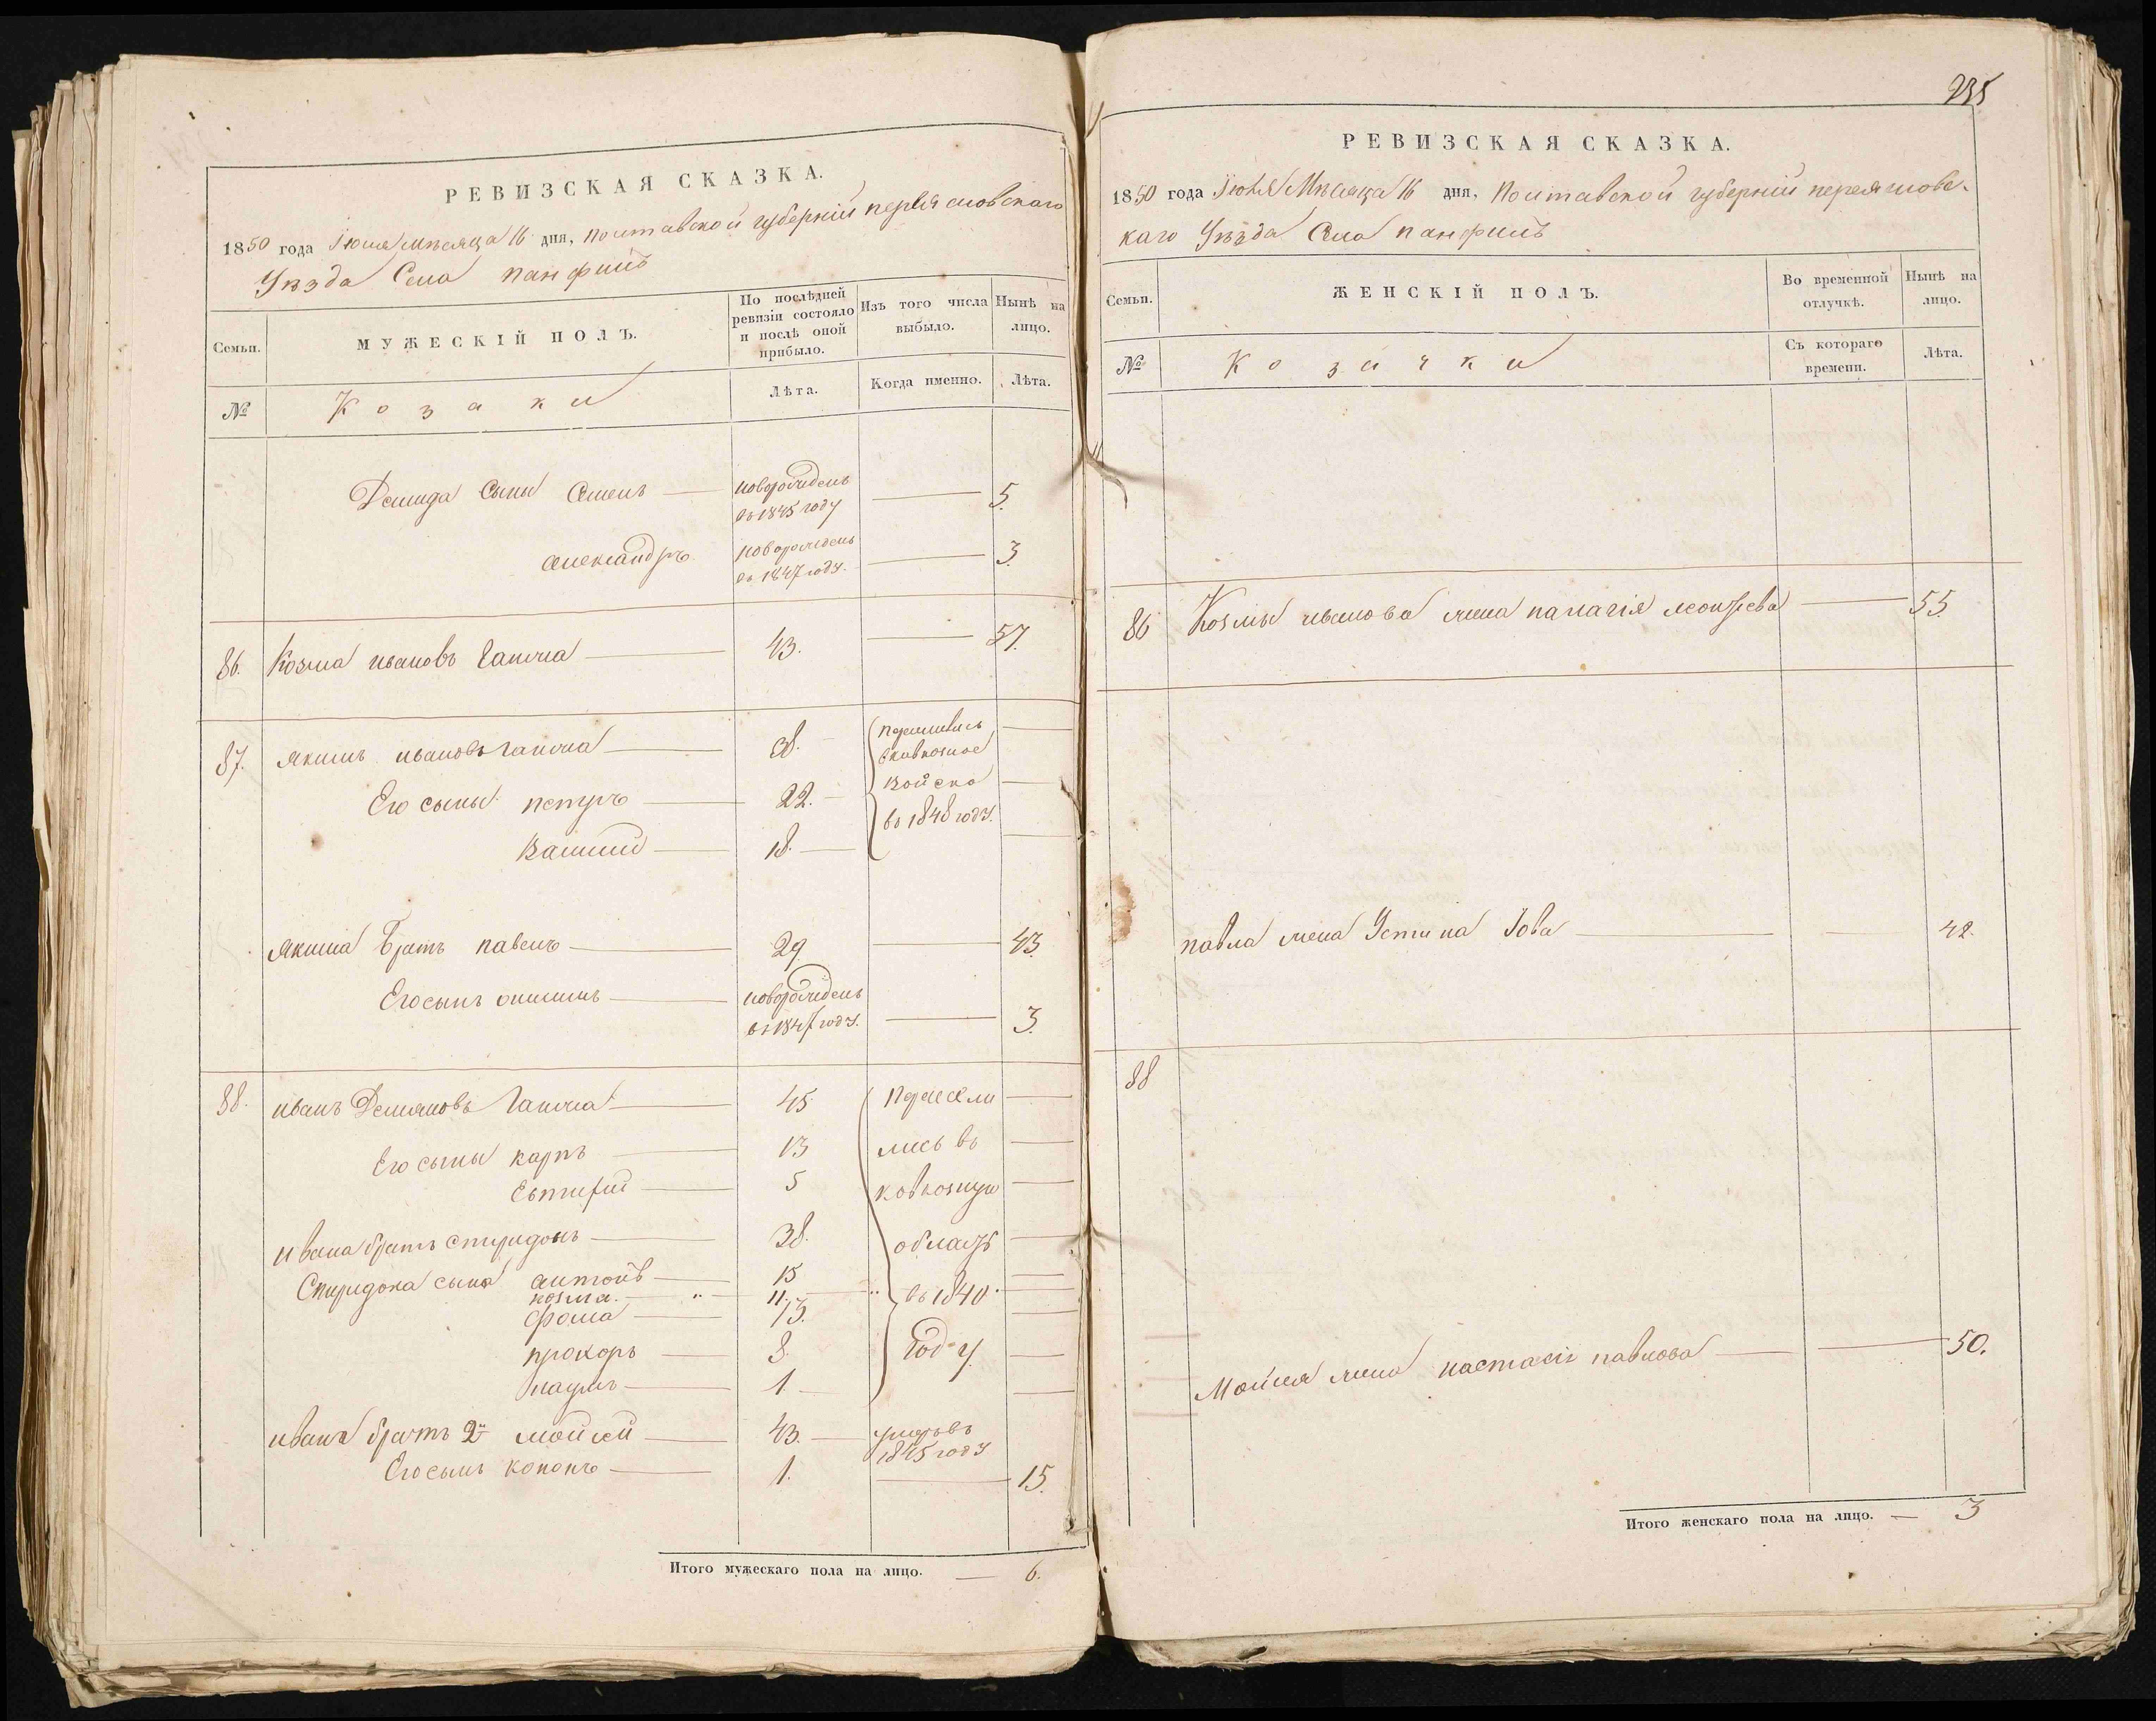 РЕВИЗСКАЯ СКАЗКА.
1850 года Іюня мѣсяца 16 дня, Полтавской губерніи переяславскаго
Уѣзда Села панфилъ
Семьи.
МУЖЕСКІЙ ПОЛЪ.
По послѣдней ревизіи состояло и послѣ оной прибыло.
Изъ того числа выбыло.
Нынѣ на лицо.
№
Козаки
Лѣта.
Когда именно.
Лѣта.
Демида сыны Семенъ новорожденъ въ 1845 году 5.
александръ новорожденъ въ 1847 году. 3.
86. Козма ивановъ Гапича 43. 57.
87. якимъ ивановъ гапича 38. переселились
в кавказкое
Его сыны петръ 22. войско
въ 1848 году.
Василий 18.
якима братъ павелъ 29. 43.
Его сынъ новорожденъ въ 1847 году. 3.
88. иванъ Демяновъ Гапича 45 Пересели
Его сыны карпъ 13 лись въ
Евтифий 5 кавказкую
ивана братъ спиридонъ 38. область
Спиридона сыны антонъ 15
козма. " 11. " въ 1840
фома 13.
прокоръ 8. году
наумъ 1.
ивана братъ 2й мойсей 43. умеръ въ 1845 году
Его сынъ кононъ 1. 15.
Итого мужескаго пола на лицо. — 6.
235
РЕВИЗСКАЯ СКАЗКА.
1850 года Іюня Мѣсяца 16 дня, Полтавской губерніи переяславс-
каго Уѣзда Села панфилъ
Семьи.
ЖЕНСКІЙ ПОЛЪ.
Во временной отлучкѣ.
Нынѣ на лицо.
№
Козачки
Съ котораго времени.
Лѣта.
86 Козмы иванова жена палагія леонтьева 55.
павла жена Устина Іова 42.
88
Мойсея жена настасія павлова 50.
Итого женскаго пола на лицо. — 3